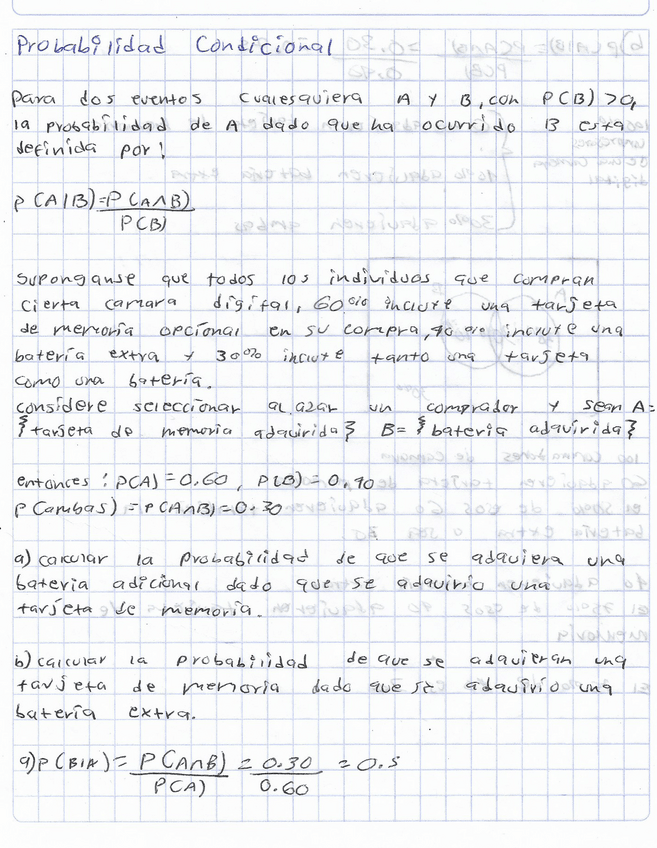 Probabilidad Condicional
Para dos eventos cualesquiera A y B, con P(B) > 0,
la probabilidad de A dado que ha ocurrido B esta
definida por:
P(A|B) = P(A∩B)
P(B)
Suponganse que todos los individuos que compran
cierta camara digital, 60% incluye una tarjeta
de memoria opcional en su compra, 40% incluye una
batería extra y 30% incluye tanto una tarjeta
como una batería.
considere seleccionar al azar un comprador y sean A=
{tarjeta de memoria adquirida} B= {bateria adquirida}
entonces: P(A) = 0.60, P(B) = 0.40
P(ambas) = P(A∩B) = 0.30
a) calcular la probabilidad de que se adquiera una
bateria adicional dado que se adquirio una
tarjeta de memoria.
b) calcular la probabilidad de que se adquieran una
tarjeta de memoria dado que se adquirio una
batería extra.
a) P(B|A) = P(A∩B) = 0.30 = 0.5
P(A) 0.60